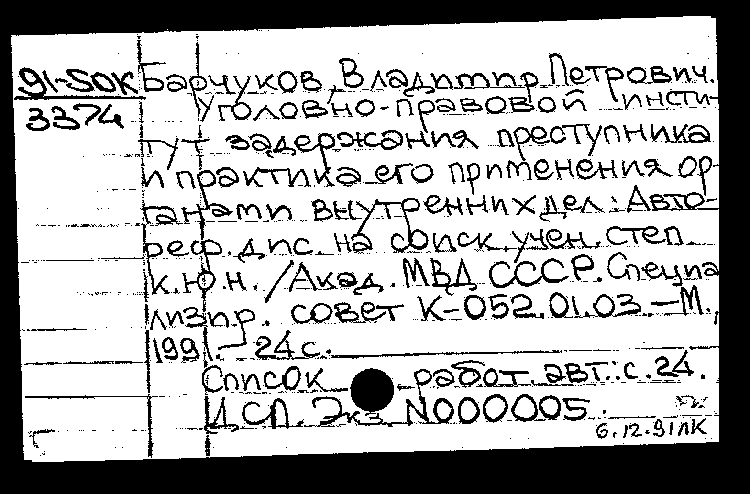 91-SOK
3374
Барчуков, Владимир Петрович.
Уголовно-правовой инсти-
тут задержания преступника
и практика его применения ор-
ганами внутренних дел: Авто-
реф. дис. на соиск. учен. степ.
к.ю.н. / Акад. МВД СССР. Специа
лизир. совет К-052.01.03. - М.,
1991. - 24 с.
Список работ авт.: с. 24.
ДСП. Экз. N000005.
6.12.91ЛК